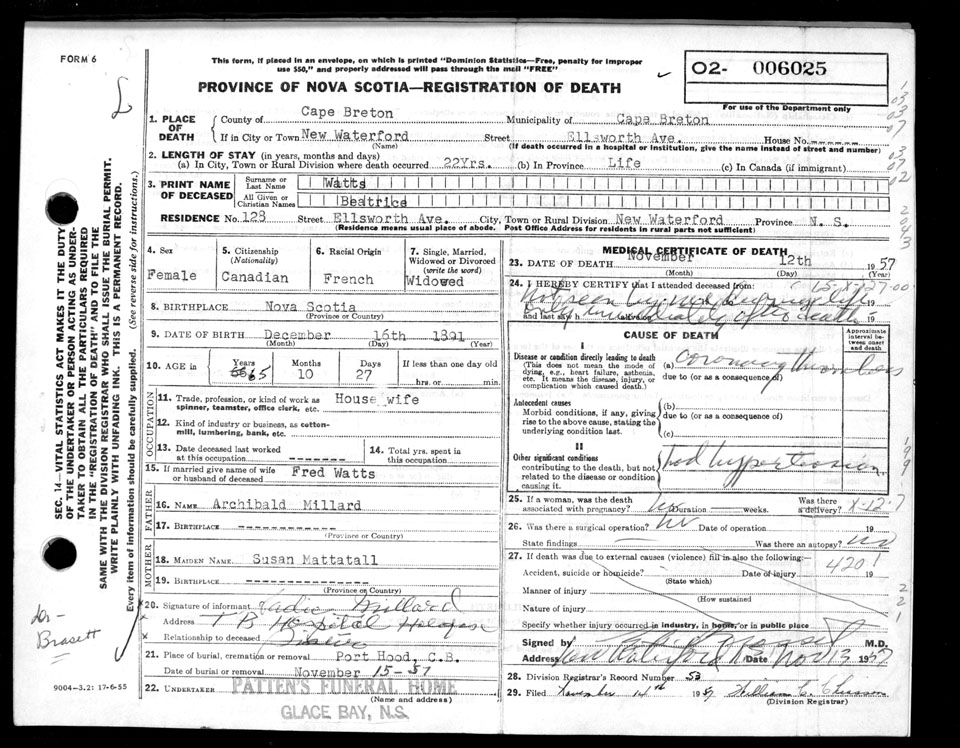 FORM 6
This form, if placed in an envelope, on which is printed "Dominion Statistics—Free, penalty for improper
use $50," and properly addressed will pass through the mail "FREE"
02- 006025
For use of the Department only
PROVINCE OF NOVA SCOTIA—REGISTRATION OF DEATH
1. PLACE OF DEATH
County of Cape Breton Municipality of Cape Breton
If in City or Town New Waterford Street Ellsworth Ave. House No. ------
(Name) (If death occurred in a hospital or institution, give the name instead of street and number)
2. LENGTH OF STAY (in years, months and days)
(a) In City, Town or Rural Division where death occurred 22Yrs. (b) In Province Life (c) In Canada (if immigrant)
3. PRINT NAME OF DECEASED
Surname or Last Name Watts
All Given or Christian Names Beatrice
RESIDENCE No. 123 Street Ellsworth Ave. City, Town or Rural Division New Waterford Province N. S.
(Residence means usual place of abode. Post Office Address for residents in rural parts not sufficient)
4. Sex
Female
5. Citizenship
(Nationality)
Canadian
6. Racial Origin
French
7. Single, Married, Widowed or Divorced
(write the word)
Widowed
8. BIRTHPLACE Nova Scotia
(Province or Country)
9. DATE OF BIRTH December 16th 1891
(Month) (Day) (Year)
10. AGE in
Years Months Days If less than one day old
65 10 27 hrs. or min.
OCCUPATION
11. Trade, profession, or kind of work as
spinner, teamster, office clerk, etc. House wife
12. Kind of industry or business, as cotton-
mill, lumbering, bank, etc.
13. Date deceased last worked
at this occupation -------
14. Total yrs. spent in
this occupation
15. If married give name of wife
or husband of deceased Fred Watts
FATHER
16. NAME Archibald Millard
17. BIRTHPLACE -------------
(Province or Country)
MOTHER
18. MAIDEN NAME Susan Mattatall
19. BIRTHPLACE -------------
(Province or Country)
20. Signature of informant Millard
Address T B Hospital
Relationship to deceased
21. Place of burial, cremation or removal Port Hood, C.B.
Date of burial or removal November 15-57
22. UNDERTAKER PATTEN'S FUNERAL HOME
(Name and address)
GLACE BAY, N.S.
MEDICAL CERTIFICATE OF DEATH
23. DATE OF DEATH November 12th 1957
(Month) (Day) (Year)
24. I HEREBY CERTIFY that I attended deceased from:
Not seen by me during life
and last saw h alive on 19
Only immediately after death
CAUSE OF DEATH
Approximate interval between onset and death
I
Disease or condition directly leading to death
(This does not mean the mode of
dying, e.g., heart failure, asthenia,
etc. It means the disease, injury, or
complication which caused death.)
(a) coronary thrombosis
due to (or as a consequence of)
Antecedent causes
Morbid conditions, if any, giving
rise to the above cause, stating the
underlying condition last.
(b)
due to (or as a consequence of)
(c)
II
Other significant conditions
contributing to the death, but not
related to the disease or condition
causing it.
had hypertension
25. If a woman, was the death
associated with pregnancy? no Duration weeks. Was there
a delivery?
26. Was there a surgical operation? no Date of operation 19
State findings Was there an autopsy? no
27. If death was due to external causes (violence) fill in also the following:—
Accident, suicide or homicide? Date of injury 19
(State which)
4201
Manner of injury
(How sustained
Nature of injury
Specify whether injury occurred in industry, in home, or in public place
Signed by M.D.
Address New Waterford Date Nov 13 1957
28. Division Registrar's Record Number 53
29. Filed November 14th 1957 William
(Division Registrar)
SEC. 14—VITAL STATISTICS ACT MAKES IT THE DUTY
OF THE UNDERTAKER OR PERSON ACTING AS UNDER-
TAKER TO OBTAIN ALL THE PARTICULARS REQUIRED
IN THE "REGISTRATION OF DEATH" AND TO FILE THE
SAME WITH THE DIVISION REGISTRAR WHO SHALL ISSUE THE BURIAL PERMIT.
WRITE PLAINLY WITH UNFADING INK. THIS IS A PERMANENT RECORD.
Every item of information should be carefully supplied. (See reverse side for instructions.)
Dr-
Brasett
9004-3.2: 17-6-55